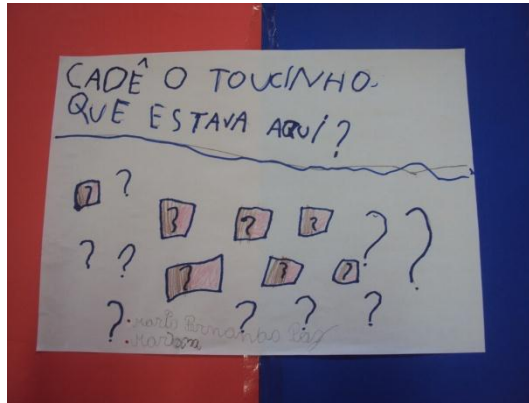 CADÊ O TOUCINHO.
QUE ESTAVA AQUÍ?
? ?
? ? ? ? ?
? ?
? ? ?
? ? ? ?